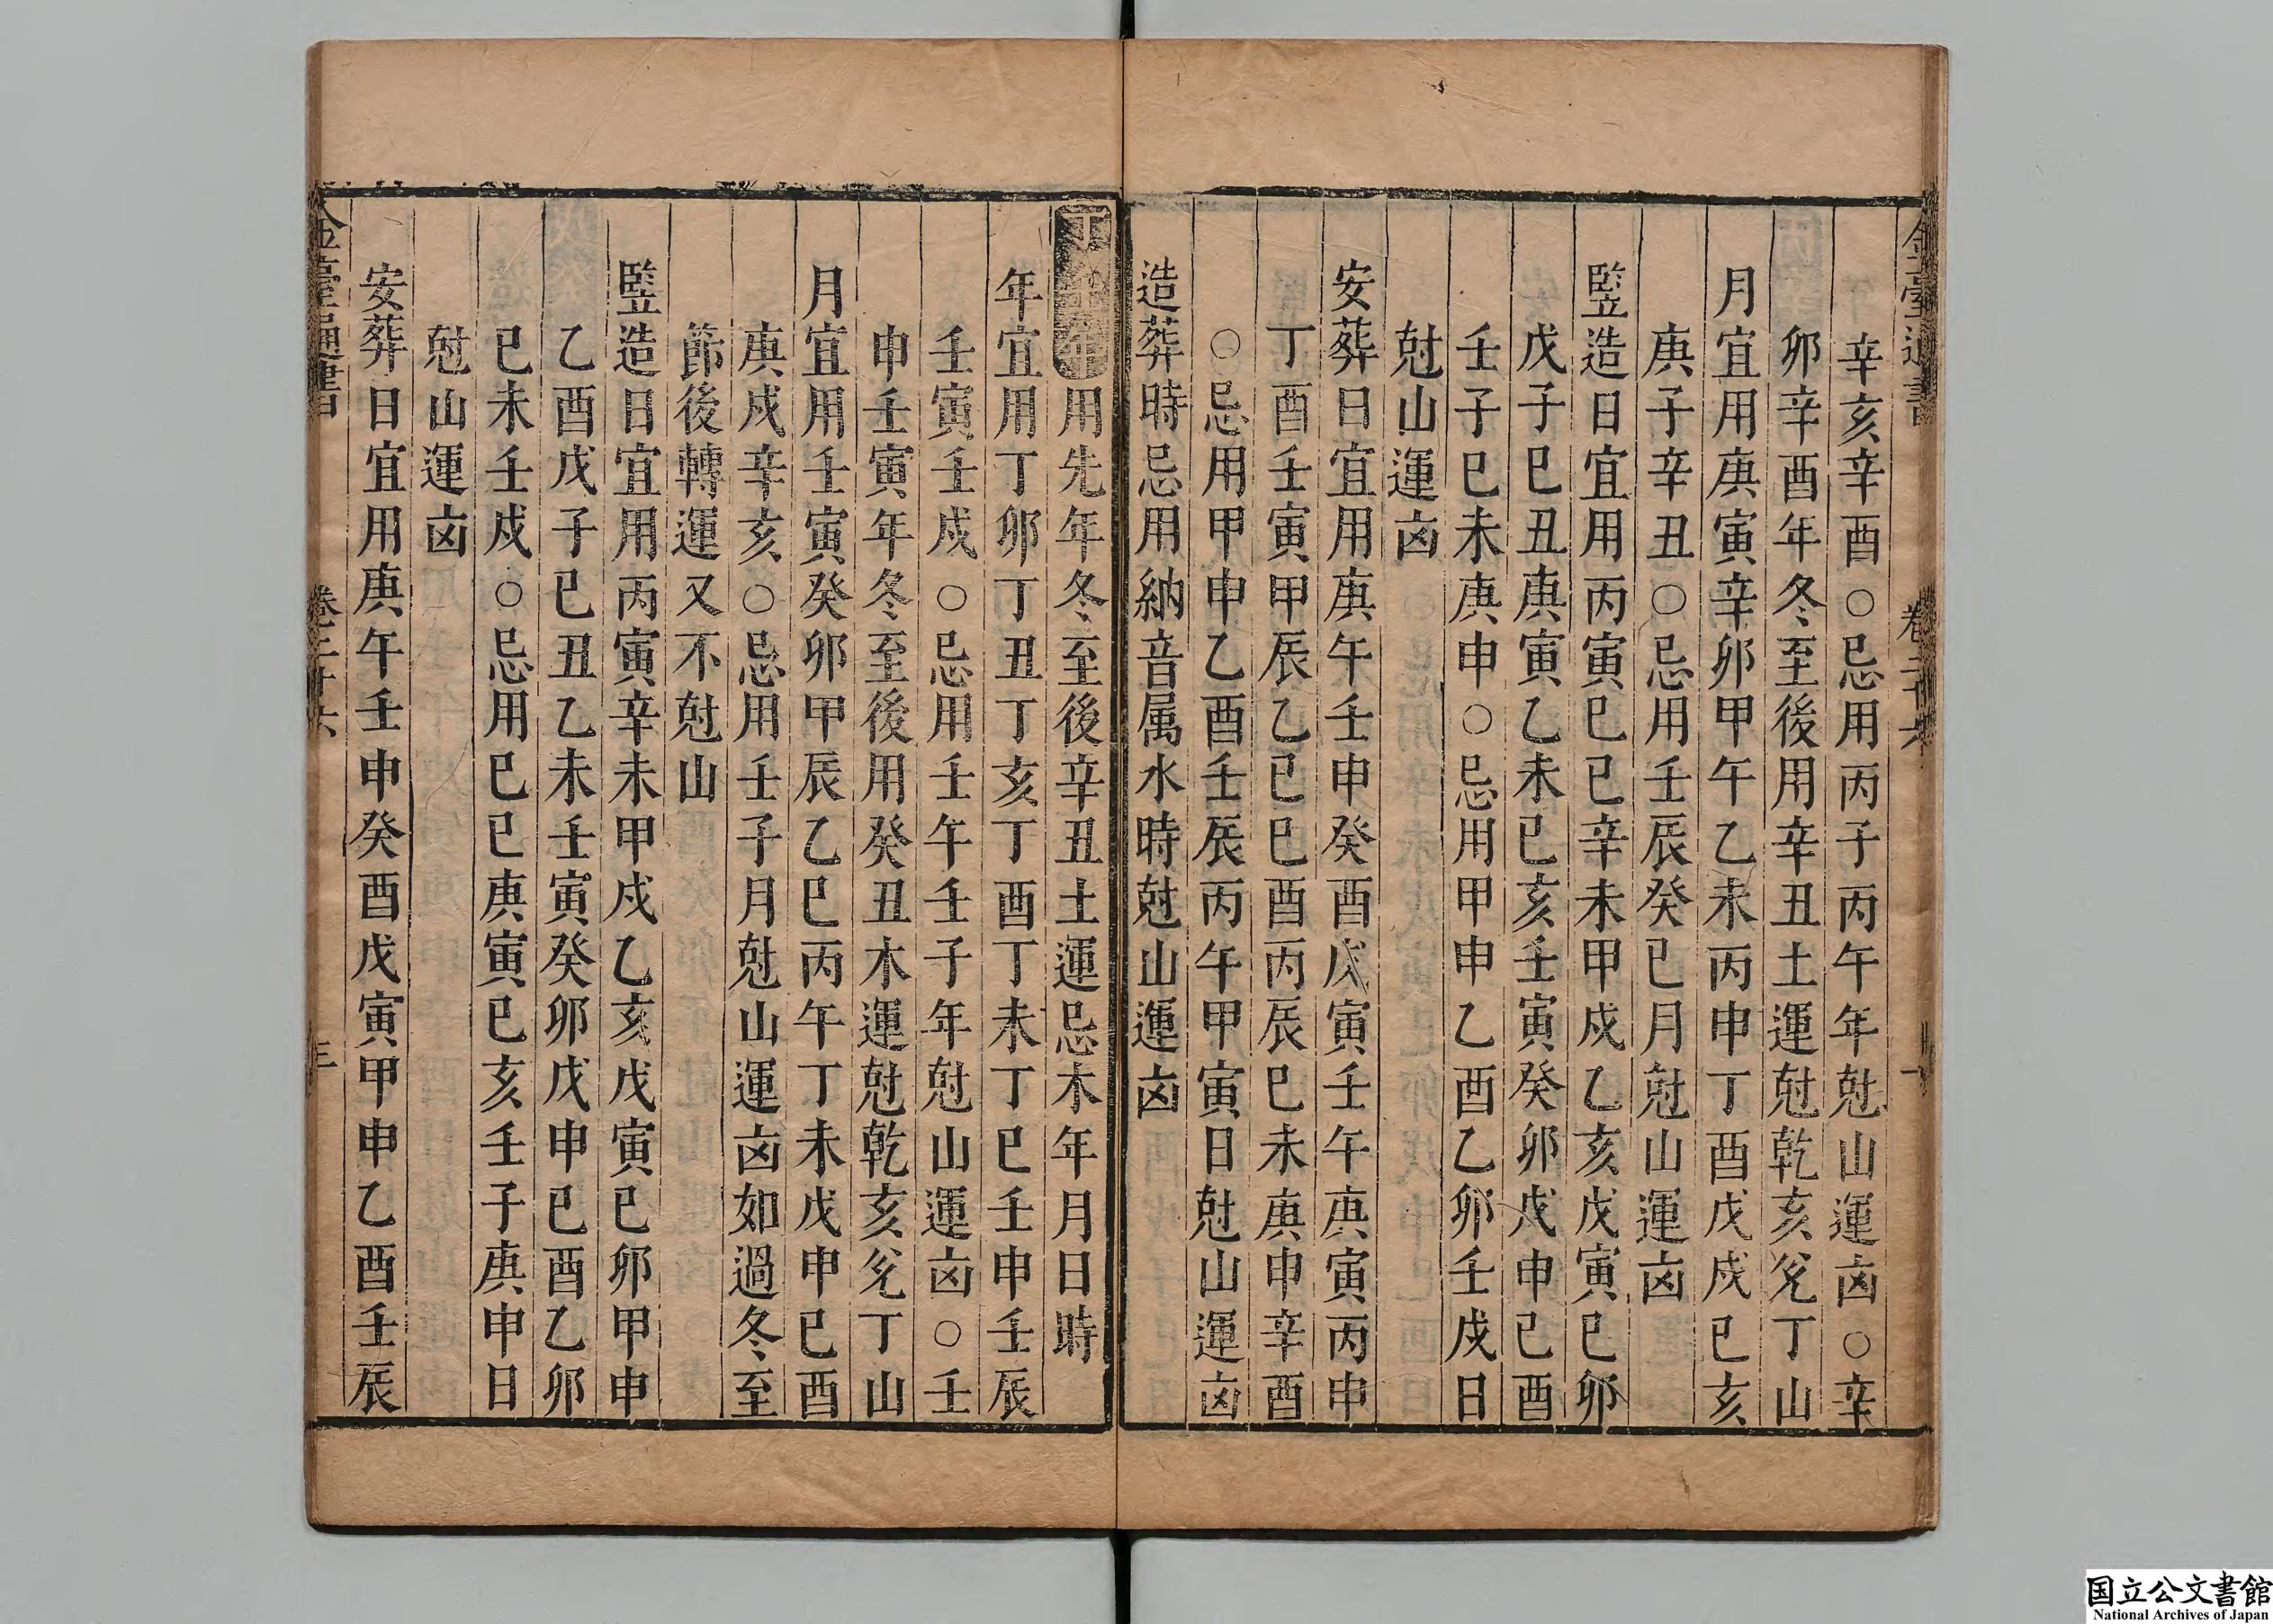 金臺通書　卷二十六
辛亥辛酉○忌用丙子丙午年尅山運凶○辛
卯辛酉年冬至後用辛丑土運尅乾亥兊丁山
月宜用庚寅辛卯甲午乙未丙申丁酉戊戌已亥
庚子辛丑○忌用壬辰癸巳月尅山運凶
監造日宜用丙寅已巳辛未甲戌乙亥戊寅已卯
戊子已丑庚寅乙未已亥壬寅癸卯戊申已酉
壬子已未庚申○忌用甲申乙酉乙卯壬戌日
尅山運凶
安葬日宜用庚午壬申癸酉戊寅壬午庚寅丙申
丁酉壬寅甲辰乙巳已酉丙辰已未庚申辛酉
○忌用甲申乙酉壬辰丙午甲寅日尅山運凶
造葬時忌用納音属水時尅山運凶
用先年冬至後辛丑土運忌木年月日時
年宜用丁卯丁丑丁亥丁酉丁未丁巳壬申壬辰
壬寅壬戌○忌用壬午壬子年尅山運凶○壬
申壬寅年冬至後用癸丑木運尅乾亥兊丁山
月宜用壬寅癸卯甲辰乙巳丙午丁未戊申已酉
庚戌辛亥○忌用壬子月尅山運凶如過冬至
節後轉運又不尅山
監造日宜用丙寅辛未甲戌乙亥戊寅已卯甲申
乙酉戊子已丑乙未壬寅癸卯戊申已酉乙卯
已未壬戌○忌用已巳庚寅已亥壬子庚申日
尅山運凶
安葬日宜用庚午壬申癸酉戊寅甲申乙酉壬辰
金臺通書　卷二十六　三
国立公文書館
National Archives of Japan